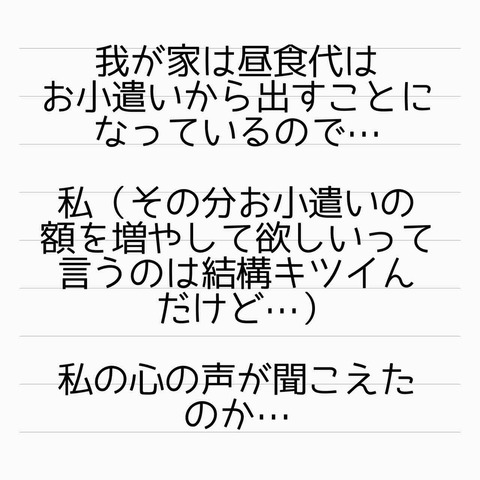 我が家は昼食代は
お小遣いから出すことに
なっているので…
私（その分お小遣いの
額を増やして欲しいって
言うのは結構キツイん
だけど…）
私の心の声が聞こえた
のか…